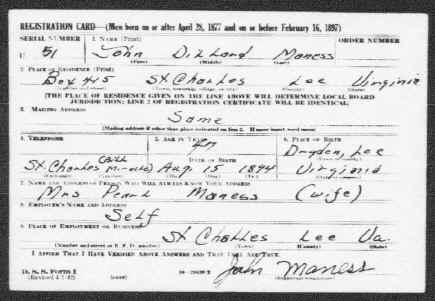 REGISTRATION CARD—(Men born on or after April 28, 1877 and on or before February 16, 1897)
SERIAL NUMBER 1. NAME (Print) ORDER NUMBER
U 51 John Dillard Maness
(First) (Middle) (Last)
2. PLACE OF RESIDENCE (Print)
Box 445 St Charles Lee Virginia
(THE PLACE OF RESIDENCE GIVEN ON THE LINE ABOVE WILL DETERMINE LOCAL BOARD
JURISDICTION; LINE 2 OF REGISTRATION CERTIFICATE WILL BE IDENTICAL)
3. MAILING ADDRESS
Same
(Mailing address if other than place indicated on line 2. If same insert word same)
4. TELEPHONE 5. AGE IN YEARS 6. PLACE OF BIRTH
47 Dryden, Lee
DATE OF BIRTH
St. Charles Aug. 15 1894 Virginia
7. NAME AND ADDRESS OF PERSON WHO WILL ALWAYS KNOW YOUR ADDRESS
Mrs Pearl Maness (wife)
8. EMPLOYER'S NAME AND ADDRESS
Self
9. PLACE OF EMPLOYMENT OR BUSINESS
St Charles Lee Va.
(Number and street or R. F. D. number) (Town) (County) (State)
I AFFIRM THAT I HAVE VERIFIED ABOVE ANSWERS AND THAT THEY ARE TRUE.
D. S. S. Form 1
(Revised 4-1-42) (over) John Maness